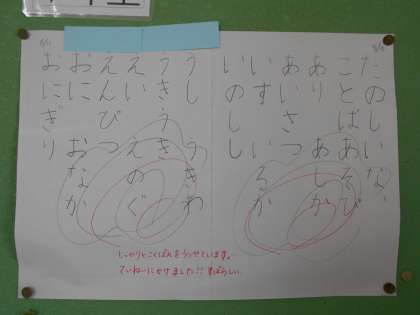 たのしいな、
ことばあそび
あり　あしか
あいさつ
いす　いるか
いのしし
うし　うきわ
うきうき
えい　えのぐ
えんぴつ
おに　おなか
おにぎり
しっかりとこくばんをうつせています。
ていねいにかけました!!すばらしい